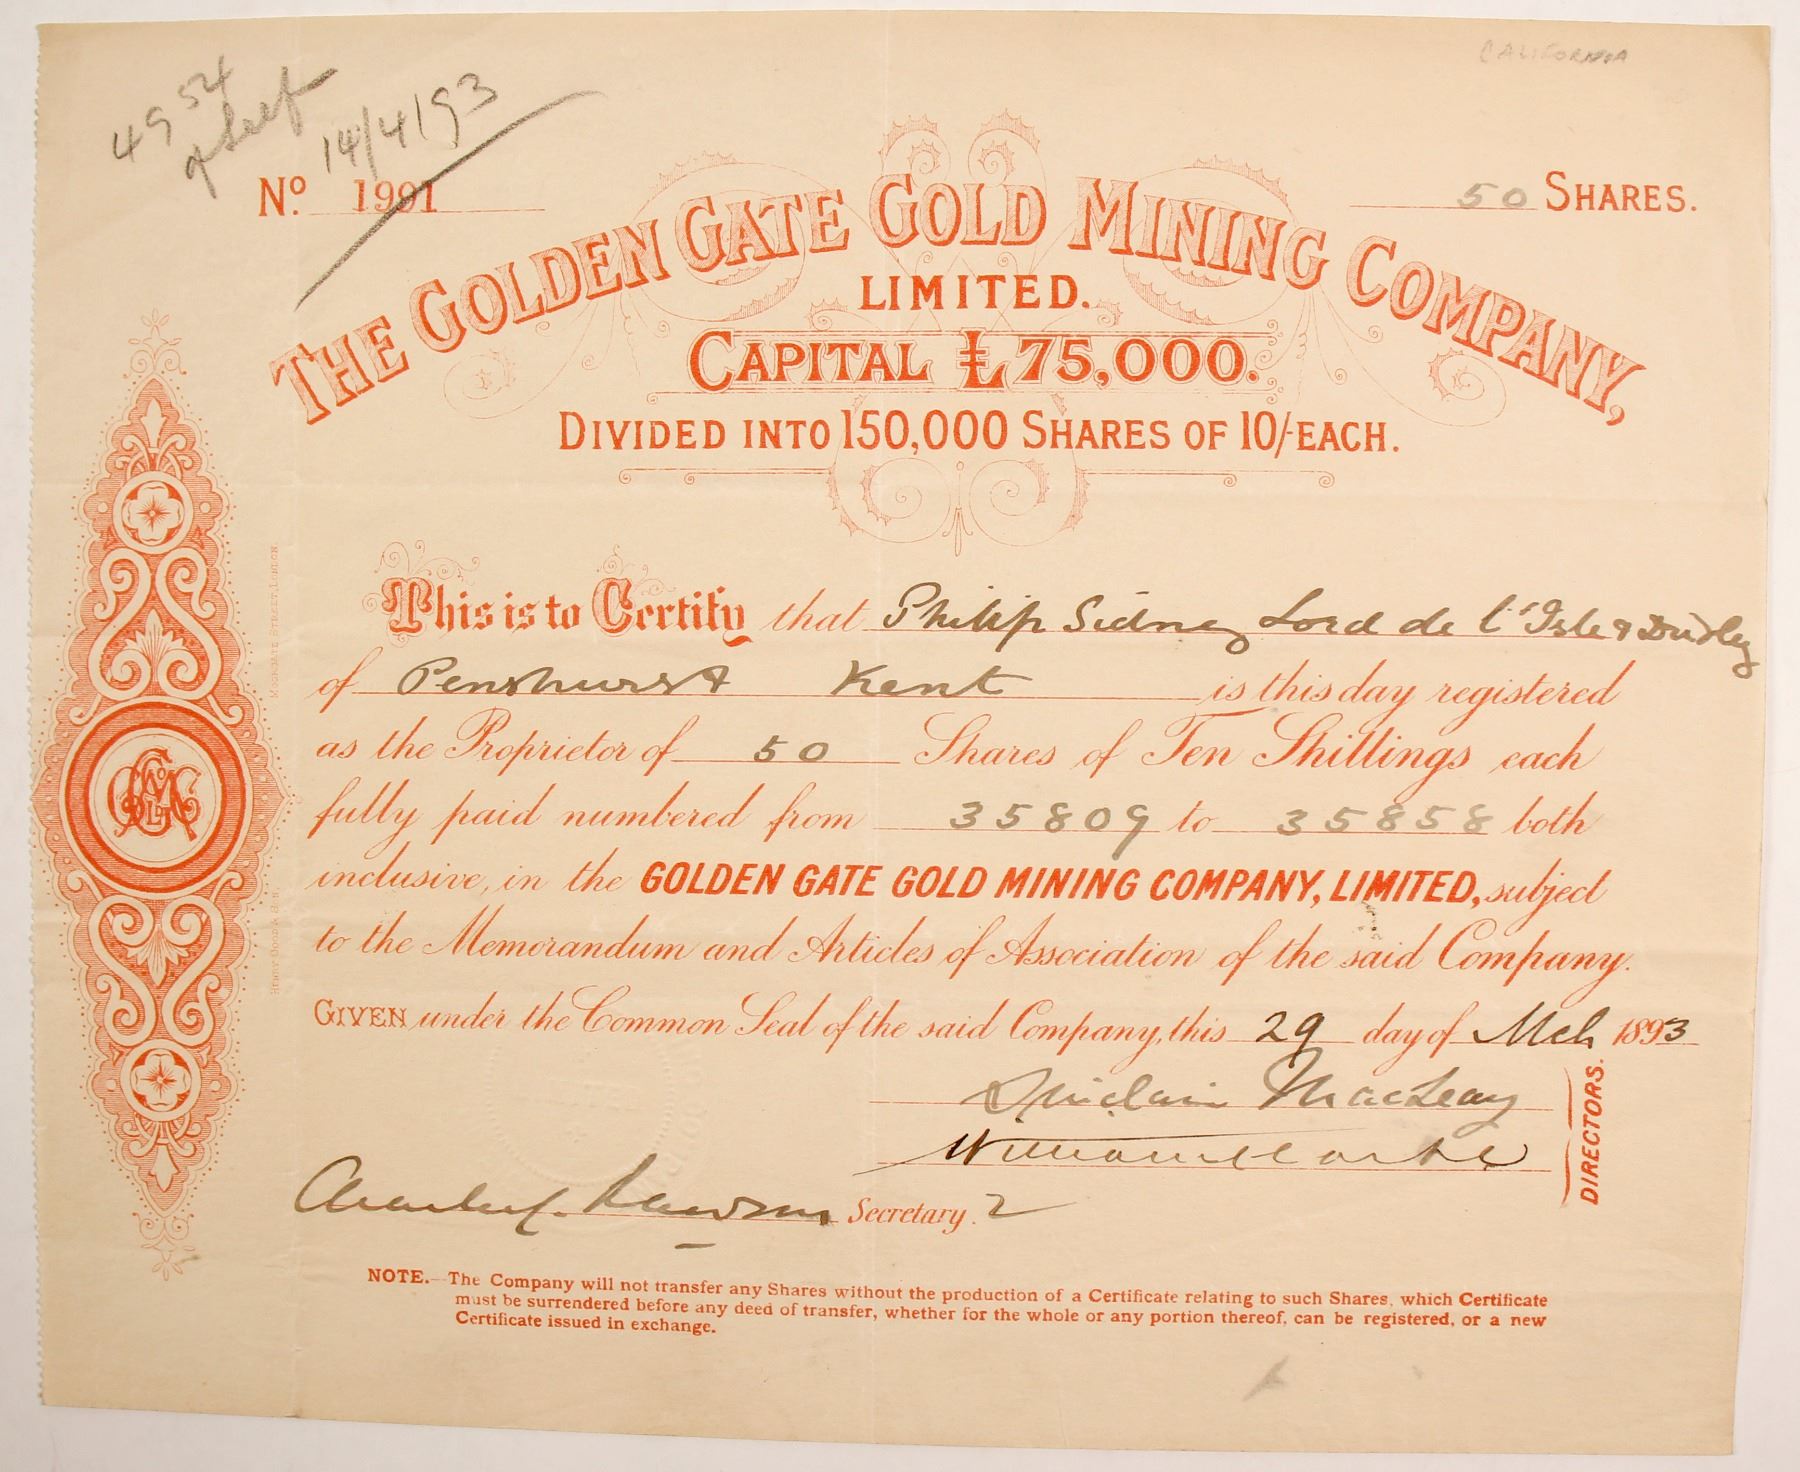 CALIFORNIA
4954
14/4/93
No. 1991
50 SHARES.
THE GOLDEN GATE GOLD MINING COMPANY,
LIMITED.
CAPITAL £75,000.
DIVIDED INTO 150,000 SHARES OF 10/- EACH.
This is to Certify that Philip Sidney Lord de L'Isle & Dudley
of Penshurst Kent is this day registered
as the Proprietor of 50 Shares of Ten Shillings each
fully paid numbered from 35809 to 35858 both
inclusive, in the GOLDEN GATE GOLD MINING COMPANY, LIMITED, subject
to the Memorandum and Articles of Association of the said Company.
GIVEN under the Common Seal of the said Company, this 29 day of Mch 1893
Sinclair MacLeay
William
DIRECTORS.
Secretary.
NOTE.—The Company will not transfer any Shares without the production of a Certificate relating to such Shares, which Certificate
must be surrendered before any deed of transfer, whether for the whole or any portion thereof, can be registered, or a new
Certificate issued in exchange.
MOORGATE STREET, LONDON.